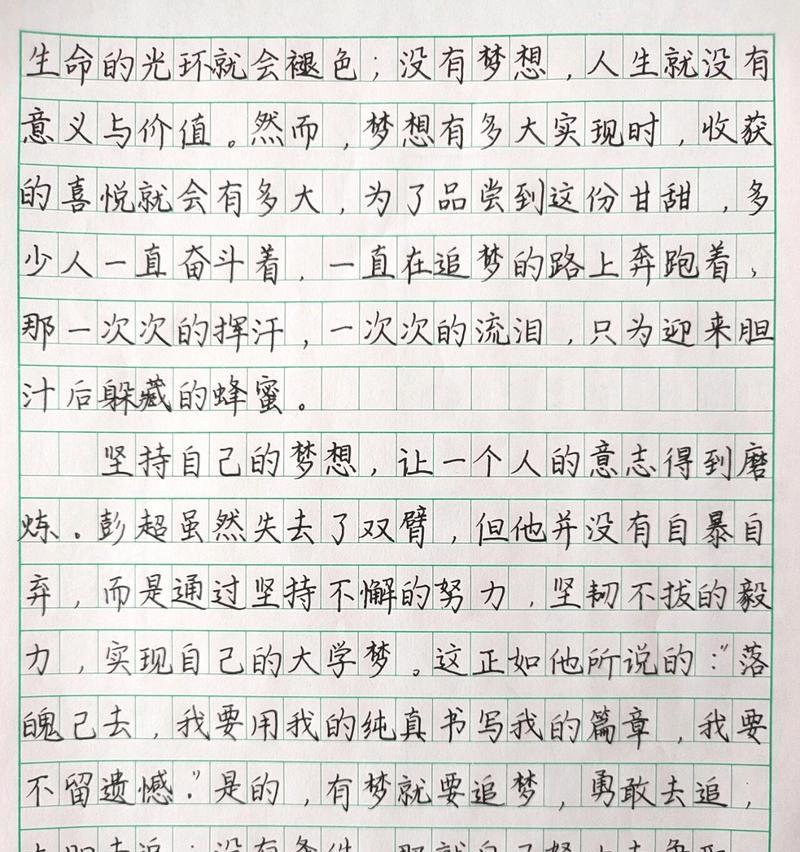 生命的光环就会褪色；没有梦想，人生就没有
意义与价值。然而，梦想有多大实现时，收获
的喜悦就会有多大，为了品尝到这份甘甜，多
少人一直奋斗着，一直在追梦的路上奔跑着，
那一次次的挥汗，一次次的流泪，只为迎来胆
汁后躲藏的蜂蜜。
坚持自己的梦想，让一个人的意志得到磨
炼。彭超虽然失去了双臂，但他并没有自暴自
弃，而是通过坚持不懈的努力，坚韧不拔的毅
力，实现自己的大学梦。这正如他所说的：“落
魄己去，我要用我的纯真书写我的篇章，我要
不留遗憾.”是的，有梦就要追梦，勇敢去追，